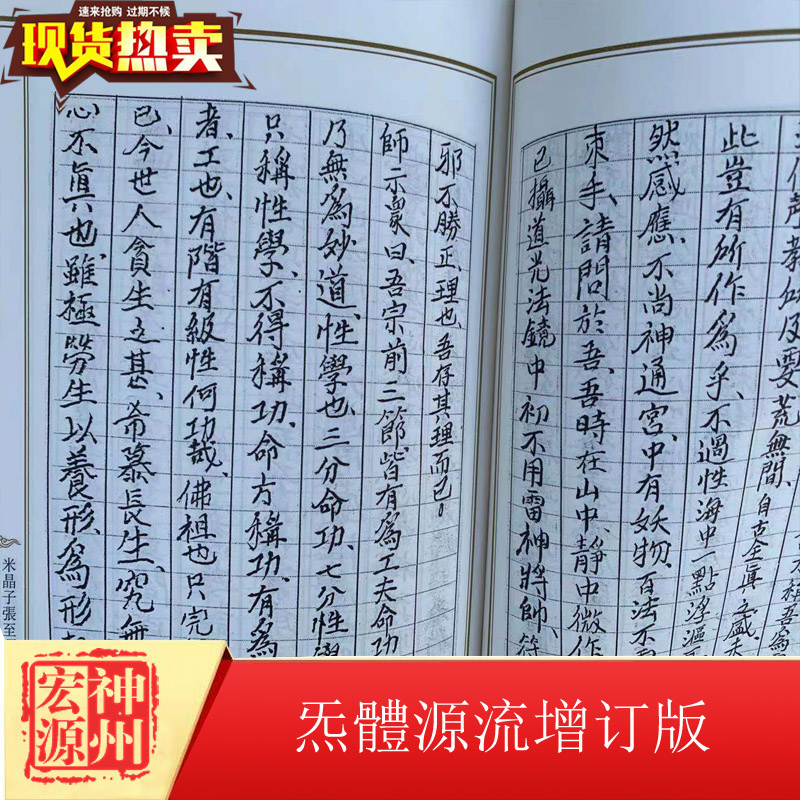 速来抢购 过期不候
现货热卖
聲教
要荒無間、自古全真盛
此豈有所作為乎、不過性海中一點浮漚
然感應、不尚神通、宮中有妖物、百法不
束手、請問於吾、吾時在山中、靜中微作
已攝道光法鏡中初不用雷神將帥、符
邪不勝正、理也吾存其理而已。
師示眾曰、吾宗前三節、皆有為工夫命功
乃無為妙道、性學也、三分命功、七分性
只稱性學、不得稱功、命方稱功、有為
者、工也、有階有級性何功哉、佛祖也只完
已、今世人貪生之甚、希慕長生、究無
心不真也、雖極勞生以養形、為形
米晶子張至
神州宏源
炁體源流增订版